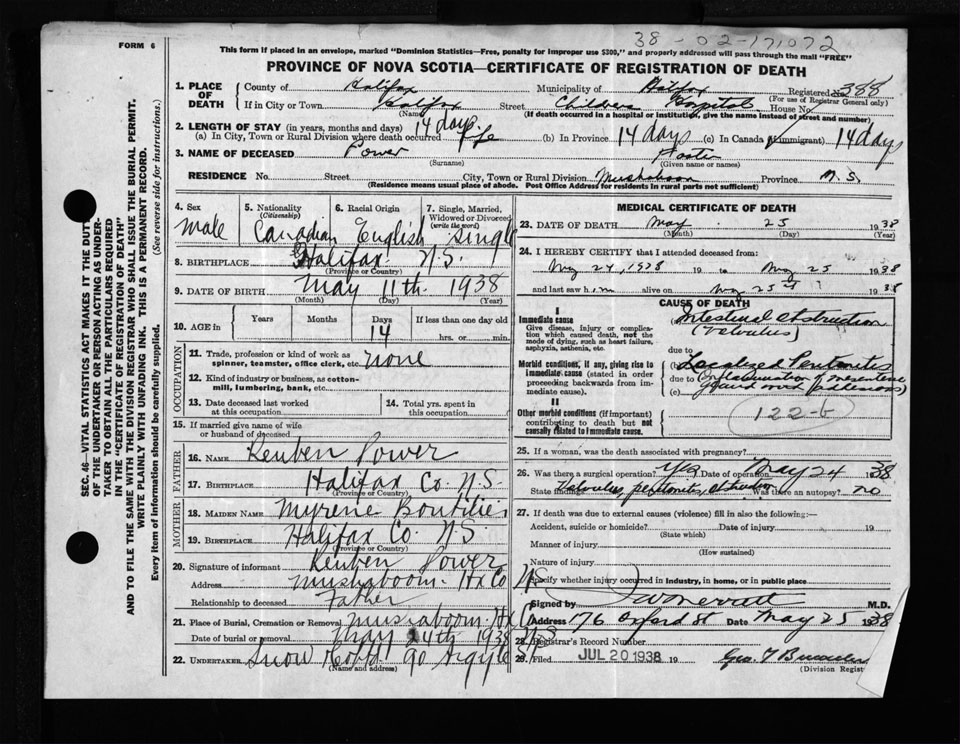 38-02-171072
FORM 6
This form if placed in an envelope, marked "Dominion Statistics—Free, penalty for improper use $300," and properly addressed will pass through the mail "FREE"
PROVINCE OF NOVA SCOTIA—CERTIFICATE OF REGISTRATION OF DEATH
SEC. 46—VITAL STATISTICS ACT MAKES IT THE DUTY
OF THE UNDERTAKER OR PERSON ACTING AS UNDER-
TAKER TO OBTAIN ALL THE PARTICULARS REQUIRED
IN THE "CERTIFICATE OF REGISTRATION OF DEATH"
AND TO FILE THE SAME WITH THE DIVISION REGISTRAR WHO SHALL ISSUE THE BURIAL PERMIT.
WRITE PLAINLY WITH UNFADING INK. THIS IS A PERMANENT RECORD.
Every item of Information should be carefully supplied. (See reverse side for instructions.)
1. PLACE OF DEATH County of Halifax Municipality of Halifax Registered No. 388
(For use of Registrar General only)
If in City or Town Halifax Street Childrens Hospital House No.
(Name) (If death occurred in a hospital or institution, give the name instead of street and number)
2. LENGTH OF STAY (in years, months and days) 14 days
(a) In City, Town or Rural Division where death occurred life (b) In Province 14 days (c) In Canada (if immigrant) 14 days
3. NAME OF DECEASED Power Foster
(Surname) (Given name or names)
RESIDENCE No. Street City, Town or Rural Division Province N.S.
(Residence means usual place of abode. Post Office Address for residents in rural parts not sufficient)
4. Sex male
5. Nationality (Citizenship) Canadian
6. Racial Origin English
7. Single, Married, Widowed or Divorced (write the word) single
8. BIRTHPLACE Halifax N.S.
(Province or Country)
9. DATE OF BIRTH May 11th 1938
(Month) (Day) (Year)
10. AGE in Years Months Days 14 If less than one day old
hrs. or min.
OCCUPATION
11. Trade, profession or kind of work as spinner, teamster, office clerk, etc. none
12. Kind of industry or business, as cotton-mill, lumbering, bank, etc.
13. Date deceased last worked at this occupation
14. Total yrs. spent in this occupation
15. If married give name of wife or husband of deceased
FATHER
16. NAME Reuben Power
17. BIRTHPLACE Halifax Co. N.S.
(Province or Country)
MOTHER
18. MAIDEN NAME Myrene Boutilier
19. BIRTHPLACE Halifax Co. N.S
(Province or Country)
20. Signature of informant Reuben Power
Address Mushaboom Hx Co N.S
Relationship to deceased Father
21. Place of Burial, Cremation or Removal Mushaboom Hx Co N.S
Date of burial or removal May 1938
22. UNDERTAKER Snow 90 Argyle St
(Name and address)
MEDICAL CERTIFICATE OF DEATH
23. DATE OF DEATH May 25 1938
(Month) (Day) (Year)
24. I HEREBY CERTIFY that I attended deceased from:
May 24, 1938 19 to May 25 1938
and last saw him alive on May 25th 1938
CAUSE OF DEATH
I
Immediate cause
Give disease, injury or complication which caused death, not the mode of dying, such as heart failure, asphyxia, asthenia, etc.
Intestinal obstruction
(Volvulus)
due to
Morbid conditions, if any, giving rise to immediate cause (stated in order proceeding backwards from immediate cause).
Localized Peritonitis
due to
(c)
II
Other morbid conditions (if important) contributing to death but not causally related to immediate cause.
122-b
25. If a woman, was the death associated with pregnancy?
26. Was there a surgical operation? Yes Date of operation May 24 38
State findings Volvulus, peritonitis, obstruction Was there an autopsy? no
27. If death was due to external causes (violence) fill in also the following:—
Accident, suicide or homicide? Date of injury 19
(State which)
Manner of injury
(How sustained)
Nature of injury
Specify whether injury occurred in industry, in home, or in public place
Signed by M.D.
Address 176 Oxford St Date May 25 1938
28. Registrar's Record Number
29. Filed JUL 20 1938 19 Geo.
(Division Registrar